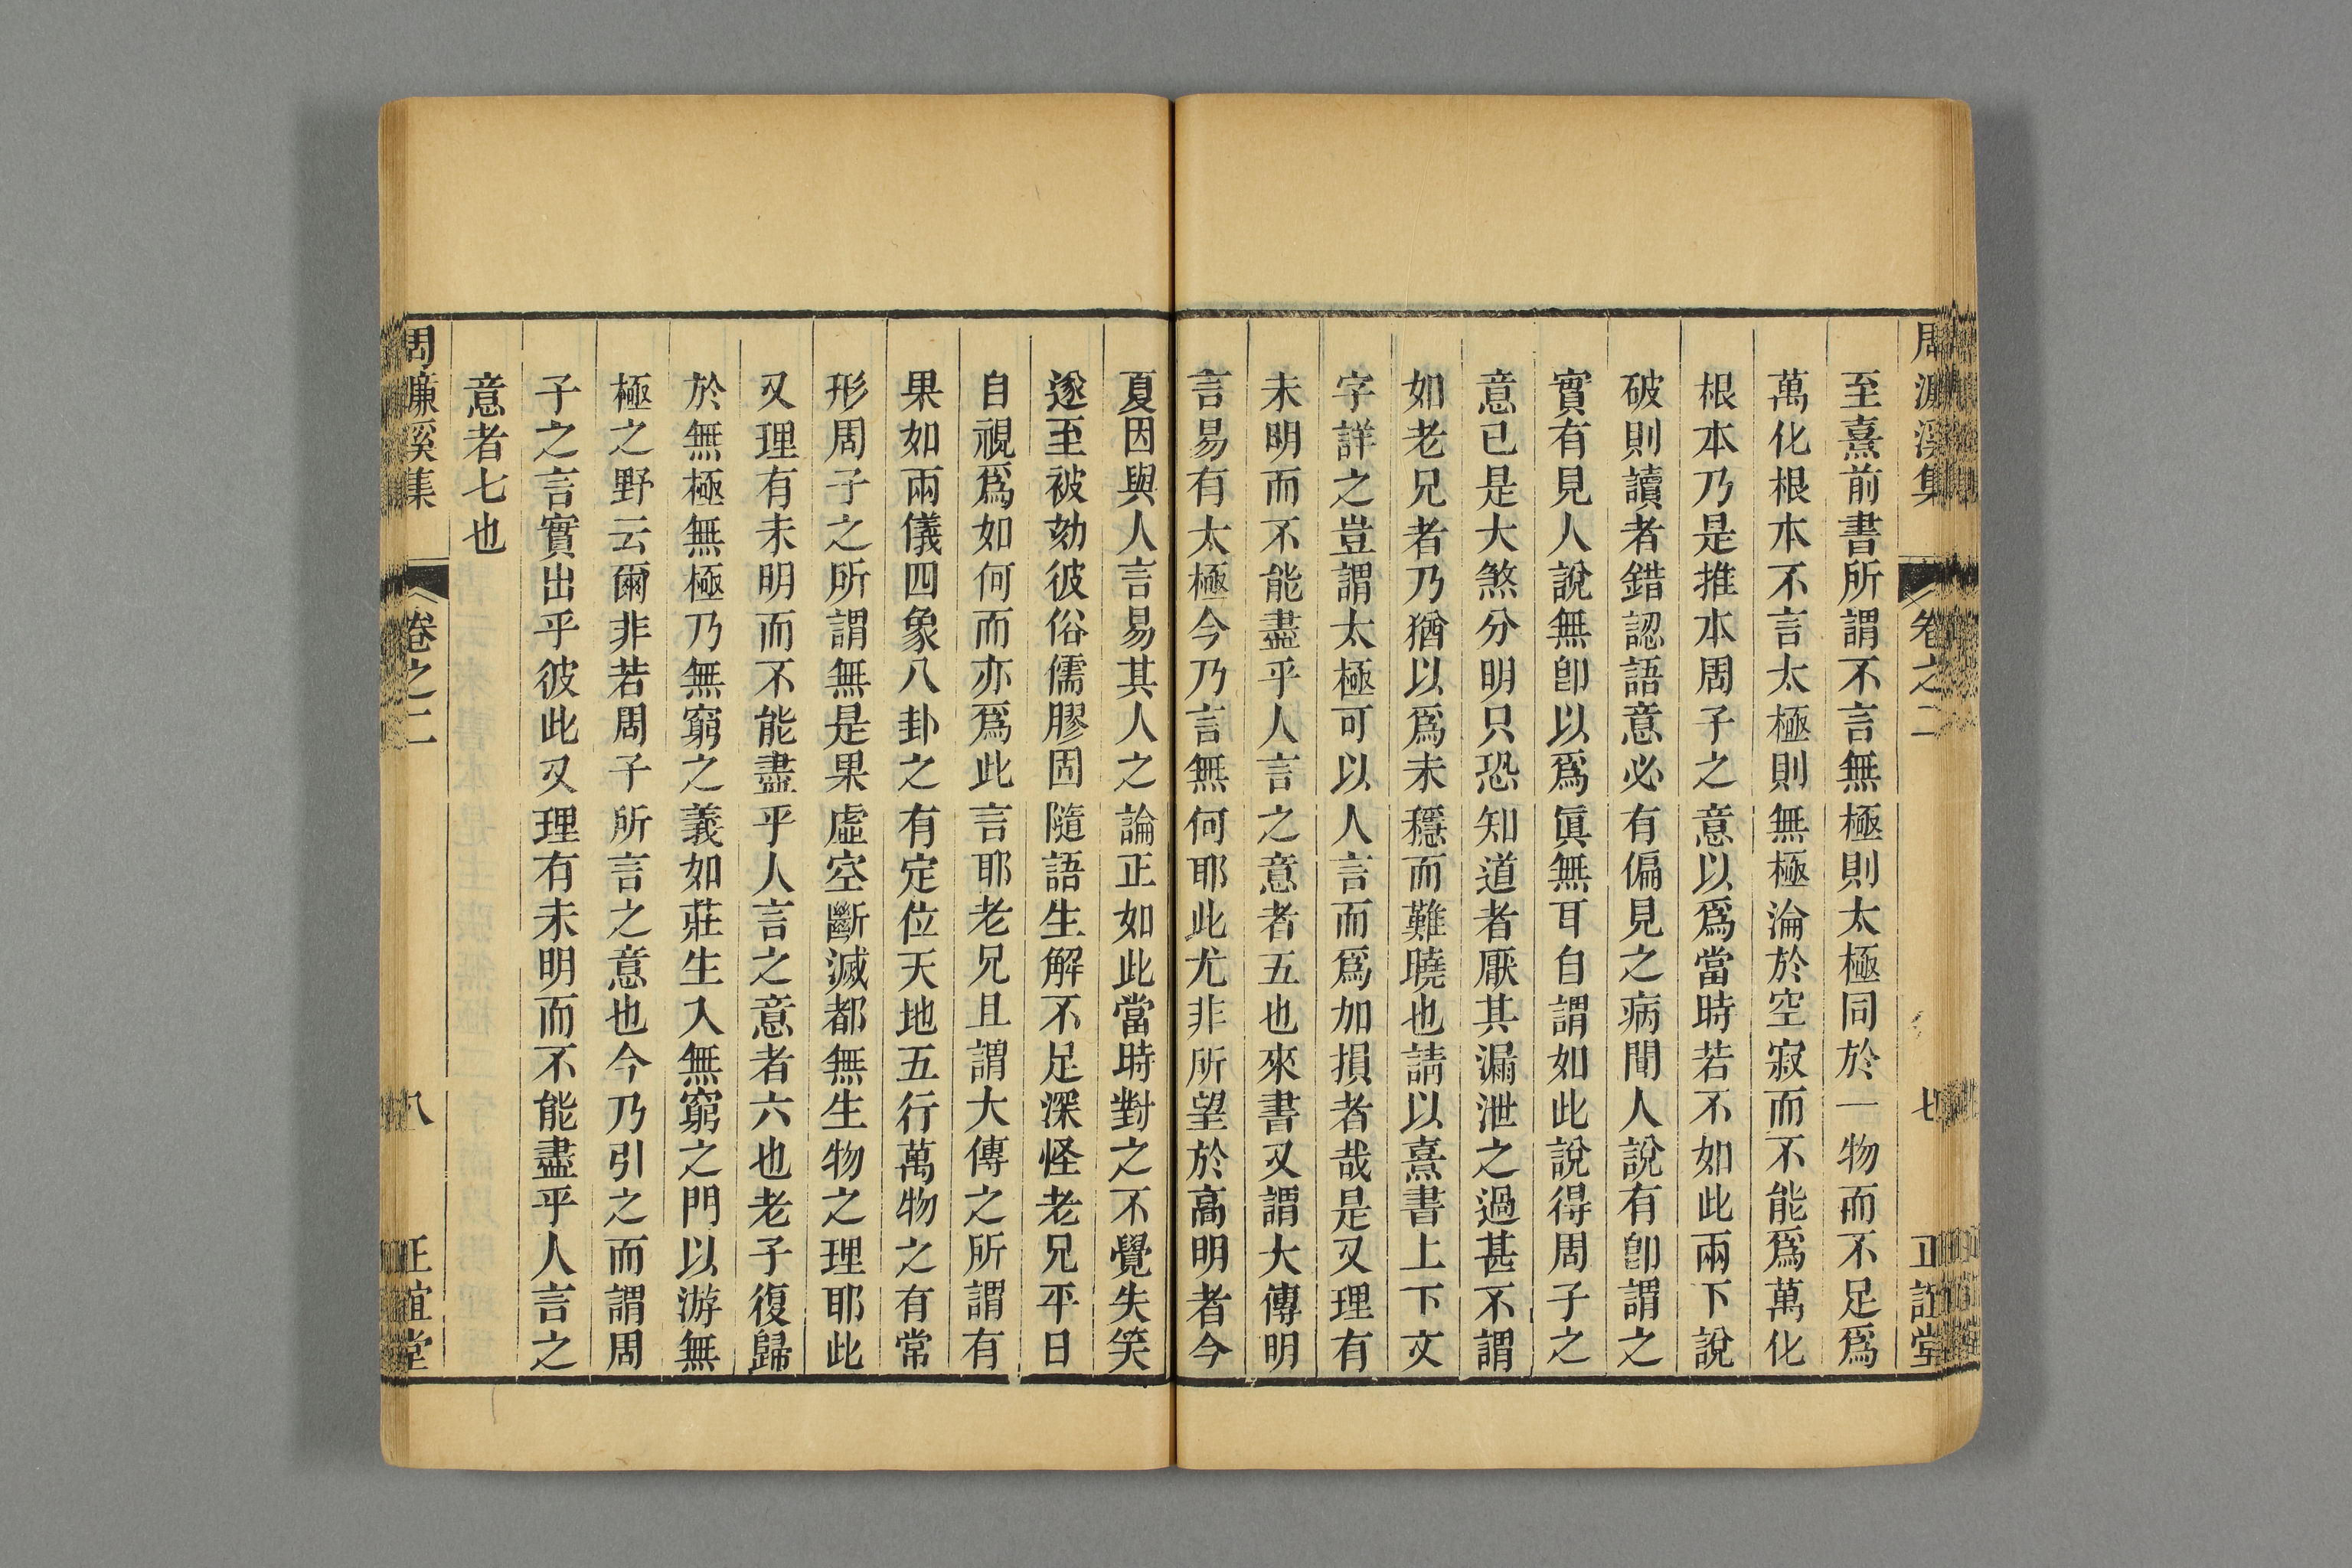 周濂溪集 卷之二 七 正誼堂
至熹前書所謂不言無極則太極同於一物而不足爲
萬化根本不言太極則無極淪於空寂而不能爲萬化
根本乃是推本周子之意以爲當時若不如此兩下說
破則讀者錯認語意必有偏見之病聞人說有卽謂之
實有見人說無卽以爲眞無耳自謂如此說得周子之
意已是大煞分明只恐知道者厭其漏泄之過甚不謂
如老兄者乃猶以爲未穩而難曉也請以熹書上下文
字詳之豈謂太極可以人言而爲加損者哉是又理有
未明而不能盡乎人言之意者五也來書又謂大傳明
言易有太極今乃言無何耶此尤非所望於高明者今
夏因與人言易其人之論正如此當時對之不覺失笑
遂至被劾彼俗儒膠固隨語生解不足深怪老兄平日
自視爲如何而亦爲此言耶老兄且謂大傳之所謂有
果如兩儀四象八卦之有定位天地五行萬物之有常
形周子之所謂無是果虛空斷滅都無生物之理耶此
又理有未明而不能盡乎人言之意者六也老子復歸
於無極無極乃無窮之義如莊生入無窮之門以游無
極之野云爾非若周子所言之意也今乃引之而謂周
子之言實出乎彼此又理有未明而不能盡乎人言之
意者七也
周濂溪集 卷之二 八 正誼堂